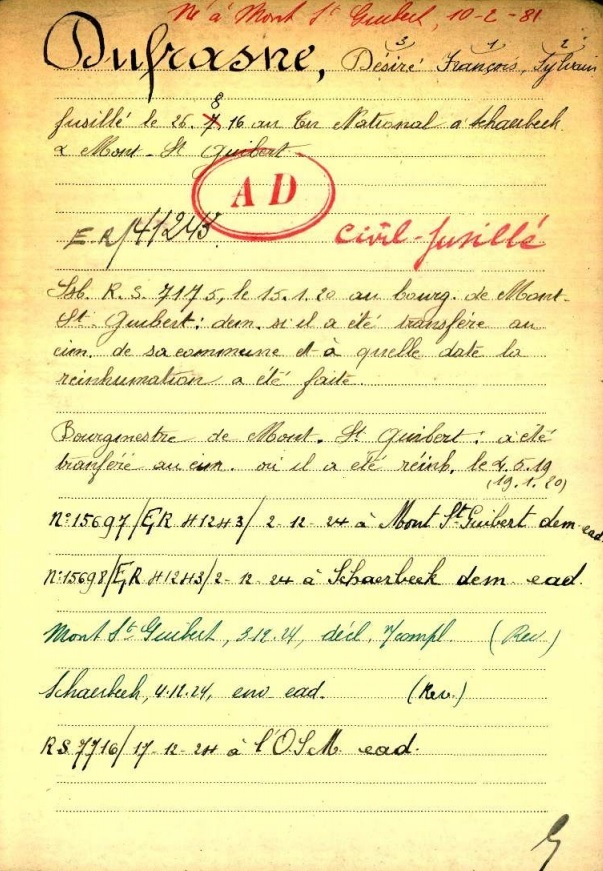 Né à Mont St Guibert, 10-2-81
Dufrasne, Désiré François, Sylvain
3 1 2
8
fusillé le 26. 7 16 au Tir National à Schaerbeek
Mont-St Guibert
AD
E.R/41243
Civil-fusillé
R. S. 7175, le 15.1.20 au bourg. de Mont-
St. Guibert: dem. si il a été transféré au
cim. de sa commune et à quelle date la
reinhumation a été faite.
Bourgmestre de Mont. St Guibert: a été
tranféré au cim. où il a été réinh. le 4.5.19
(19.1.20)
N°15697/E,R 41243/ 2-12-24 à Mont St Guibert dem ead
N°15698/E,R 41243/2-12-24 à Schaerbeek dem ead.
Mont St Guibert, 3.12.24, décl. (Rev.)
Schaerbeek, 4.12.24, env ead. (Rev.)
RS 7716/ 17-12-24 à l'O.S.M. ead.